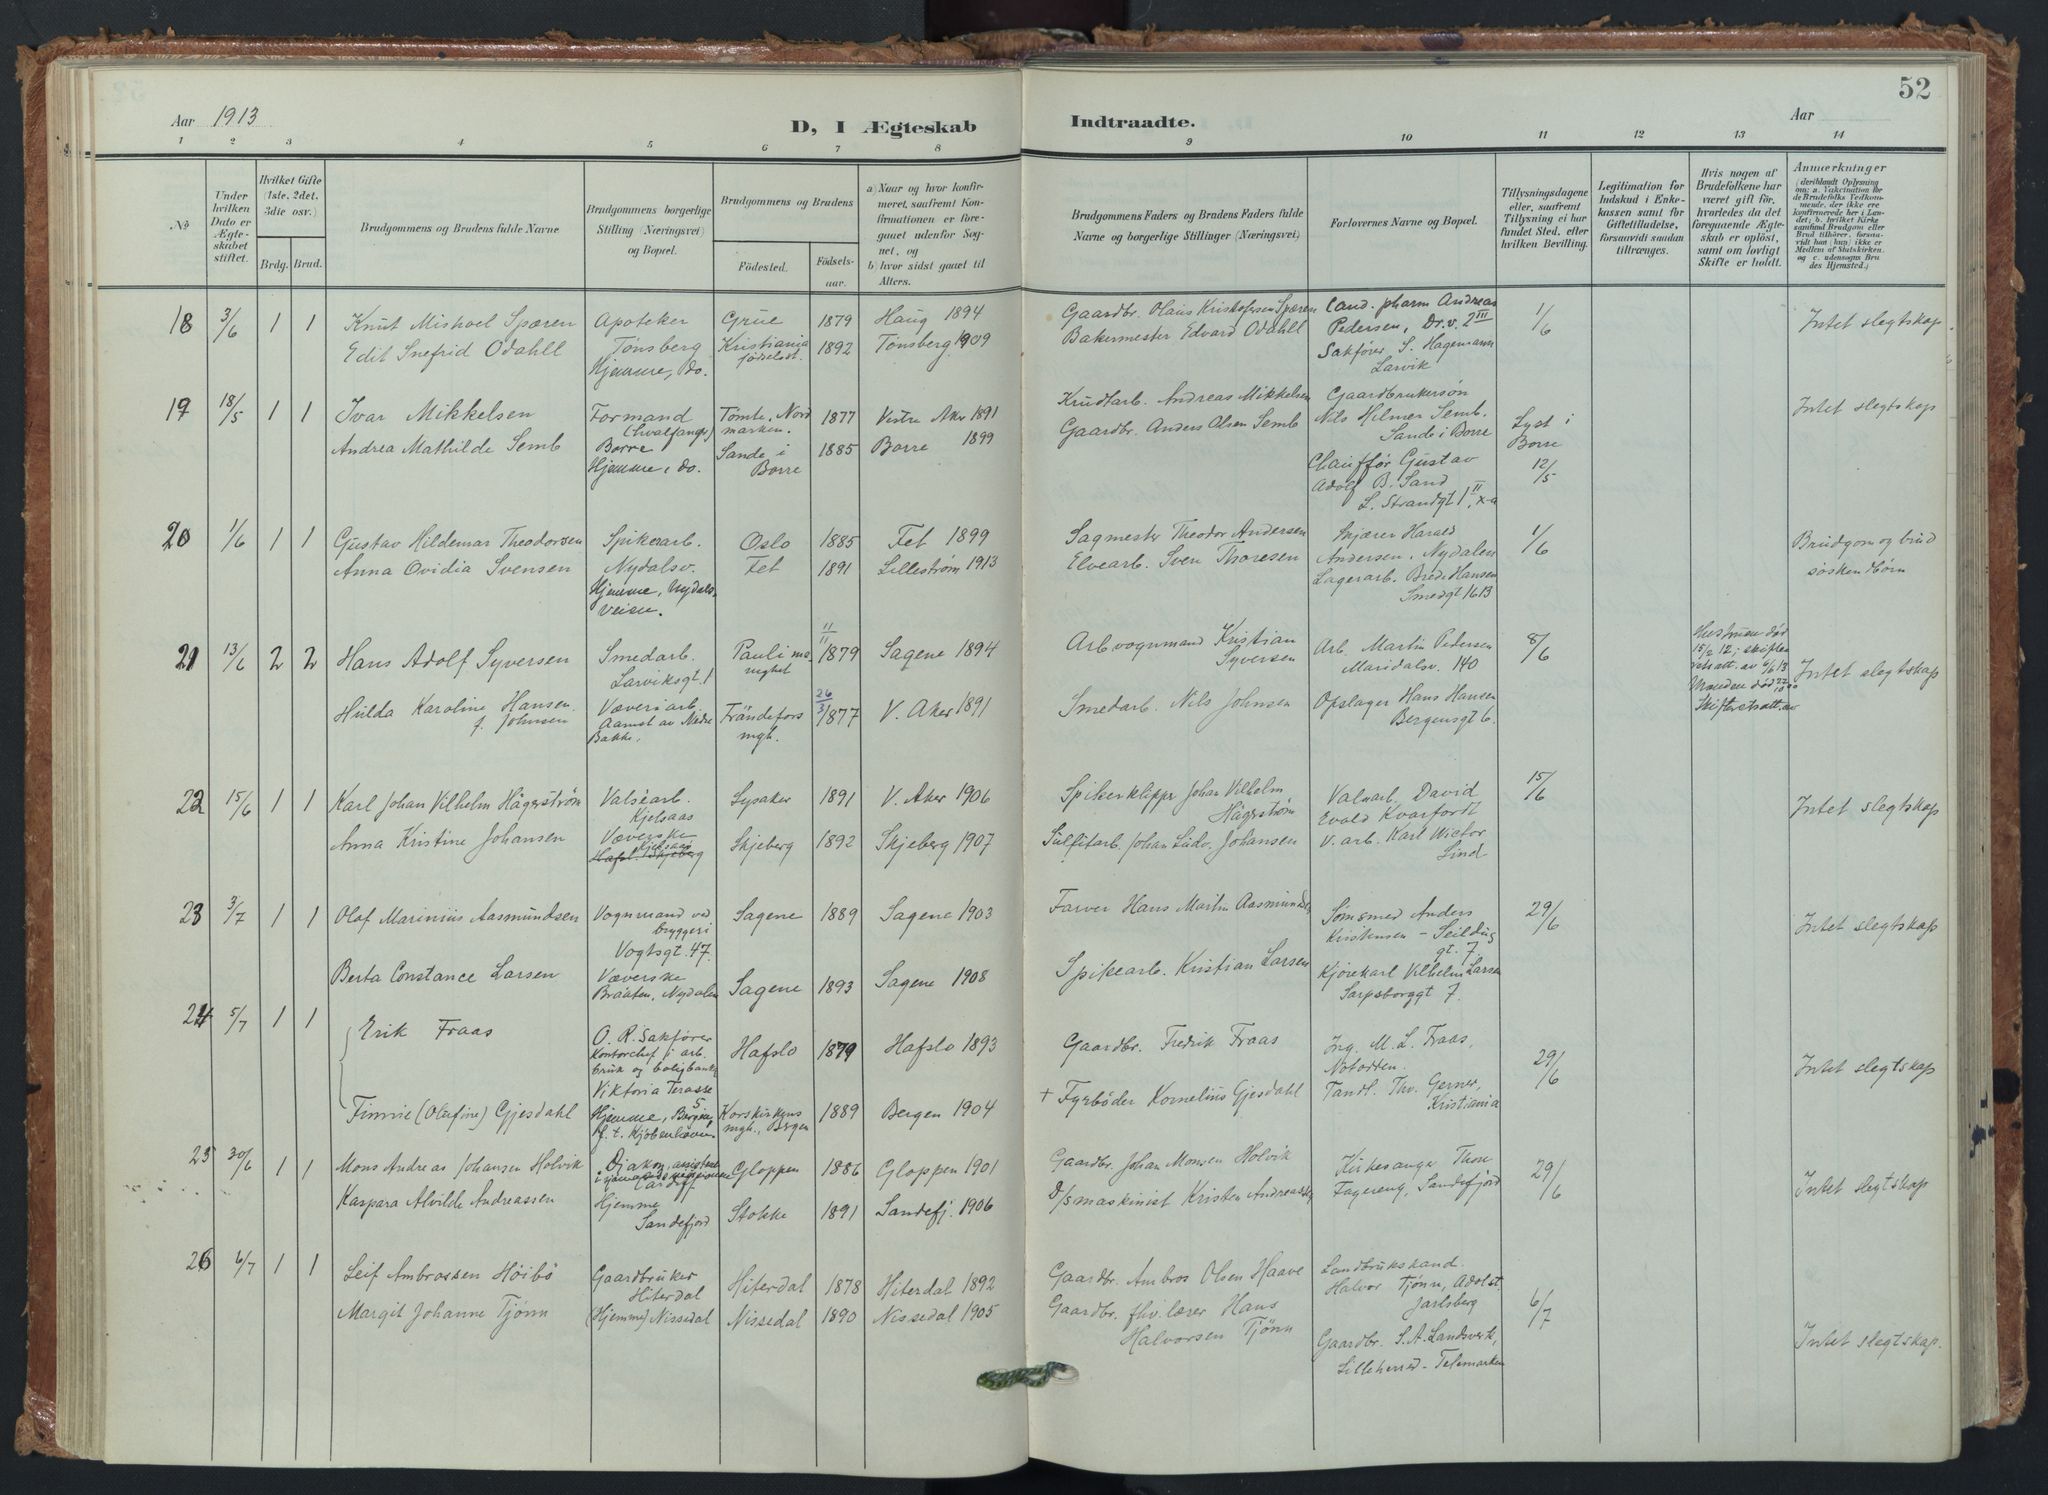 52
Aar 1913
D, I Ægteskab Indtraadte.
Aar
1 2 3 4 5 6 7 8 9 10 11 12 13 14
No
Under hvilken Dato er Ægteskabet stiftet.
Hvilket Gifte (1ste, 2det, 3die osv.)
Brdg. Brud.
Brudgommens og Brudens fulde Navne
Brudgommens borgerlige Stilling (Næringsvei) og Bopæl.
Brudgommens og Brudens
Fødested.
Fødselsaar.
a) Naar og hvor konfirmeret, saafremt Konfirmationen er foregaaet udenfor Sognet, og
b) hvor sidst gaaet til Alters.
Brudgommens Faders og Brudens Faders fulde Navne og borgerlige Stillinger (Næringsvei)
Forlovernes Navne og Bopæl.
Tillysningsdagene eller, saafremt Tillysning ei har fundet Sted, efter hvilken Bevilling.
Legitimation for Indskud i Enkekassen samt for Giftetilladelse, forsaavidt saadan tiltrænges.
Hvis nogen af Brudefolkene har været gift før, hvorledes da det foregaaende Ægteskab er opløst, samt om lovligt Skifte er holdt.
Anmerkninger
(deriblandt Oplysning om: a. Vakcination for de Brudefolks Vedkommende, der ikke ere konfirmerede her i Landet; b. hvilket Kirkesamfund Brudgom eller Brud tilhører, forsaavidt han (hun) ikke er Medlem af Statskirken, og c. udensogns Brudes Hjemsted.)
18 3/6 1 1 Knut Mishoel Spæren Apoteker Grue 1879 Haug 1894 Gaardbr. Olaus Kristofersen Spæren Cand. pharm Andreas 1/6 Intet slegtskap
Edit Snefrid Odahll Tønsberg Kristiania 1892 Tønsberg 1909 Bakermester Edvard Odahll Pedersen, Dr. v. 2 III
Hjemme, do. fødselsst. Sakfører S. Hagemann
Larvik
19 18/5 1 1 Ivar Mikkelsen Formand Tømte, Nord 1877 Vestre Aker 1891 Krudtarb. Andreas Mikkelsen Gaardbrukersøn Intet slegtskap
(hvalfangs) marken. Nils Hilmer Semb.
Andrea Mathilde Semb Borre Sande i 1885 Borre 1899 Gaardbr. Anders Olsen Semb Sande i Borre Lyst i
Hjemme, do. Borre Chauffør Gustav Borre
Adolf B. Sand 12/5
L. Strandgt 1 II, x-a
20 1/6 1 1 Gustav Hildemar Theodorsen Spikerarb. Oslo 1885 Fet 1899 Sagmester Theodor Andersen Skjærer Harald 1/6 Brudgom og brud
Anna Ovidia Svensen Nydalsv. Fet 1891 Lillestrøm 1913 Elvearb. Sven Thoresen Andersen, Nydalen søskendbørn
Hjemme, Nydals- Lagerarb. Brede Hansen
veien. Smedgt 16 B
21 13/6 2 2 Hans Adolf Syversen Smedarb. Pauli me- 11/11 1879 Sagene 1894 Arb. vognmand Kristian Arb. Martin Pedersen 8/6 Hustruen død Intet slegtskap
Larviksgt. 1 nighet Syversen Maridalsv. 140 15/2 12; skifte
attt. av 6/6 13
Hulda Karoline Hansen Væveriarb. Frändefors 26/3 1877 V. Aker 1891 Smedarb. Nils Johnsen Opslager Hans Hansen Manden død
f. Johnsen Aamot av Nedre mgh. Bergensgt 6. Skifteratt. av
Bakke.
22 15/6 1 1 Karl Johan Vilhelm Hägerström Valsearb. Lysaker 1891 V. Aker 1906 Spikerklipper Johan Vilhelm Valsearb. David 15/6 Intet slegtskap
Kjelsaas Hägerstrøm Evald Kvarfordt
Anna Kristine Johansen Væverske Skjeberg 1892 Skjeberg 1907 Sulfitarb. Johan Ludv. Johansen V. arb. Karl Wictor
Kjelsaas Lind
Hafsl. i Skjeberg
23 3/7 1 1 Olaf Marinius Aasmundsen Vognmand ved Sagene 1889 Sagene 1903 Farver Hans Martin Aasmundsen Sømsmed Anders 29/6 Intet slegtskap
bryggeri Kristensen - Seildugs
Vogtsgt. 47. gt. 7
Berta Constance Larsen Væverske Sagene 1893 Sagene 1908 Spikearb. Kristian Larsen Kjørekarl Vilhelm Larsen
Braaten, Nydalen Sarpsborggt 7.
24 5/7 1 1 Erik Fraas O. R. Sakfører Hafslo 1879 Hafslo 1893 Gaardbr. Fredrik Fraas Ing. M. L. Fraas, 29/6 Intet slegtskap
Kontorchef i arb. Notodden.
bruk og boligbank
Viktoria Terasse 5
Finnie (Olafine) Gjesdahl Hjemme, Bergen, Korskirkens 1889 Bergen 1904 + Fyrbøder Kornelius Gjesdahl Tandl. Thv. Gerner,
f. t. Kjøbenhavn mgh., Bergen Kristiania
25 30/6 1 1 Mons Andreas Johansen Holvik Djakon, assistent Gloppen 1886 Gloppen 1901 Gaardbr. Johan Monsen Holvik Kirkesanger Thore 29/6 Intet slegtskap
i sjømandsmissionen Fagereng, Sandefjord
Cardiff
Kaspara Alvilde Andreassen Hjemme Stokke 1891 Sandefj. 1906 D/s maskinist Kristen Andreassen
Sandefjord
26 6/7 1 1 Leif Ambrossen Høibø Gaardbruker Hiterdal 1878 Hiterdal 1892 Gaardbr. Ambros Olsen Haave Landbrukskand. 6/7 Intet slegtskap.
Hiterdal Halvor Tjønn, Adolst.
Margit Johanne Tjønn (Hjemme) Nissedal Nissedal 1890 Nissedal 1905 Gaardbr. fhv. lærer Hans Jarlsberg
Halvorsen Tjønn Gaardbr. S. A. Landsverk,
Lilleherred - Telemarken